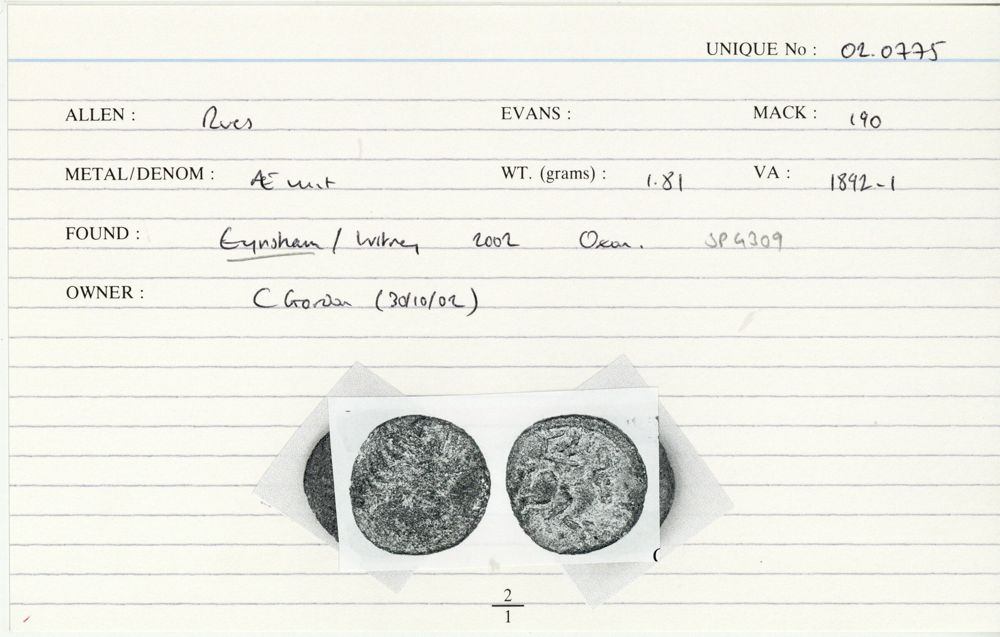 UNIQUE No : 02.0775
ALLEN : Rues EVANS : MACK : 190
METAL/DENOM : Æ unit WT. (grams) : 1.81 VA : 1892-1
FOUND : Eynsham / Witney 2002 Oxon. SP4309
OWNER : C Gordon (30/10/02)
2
1